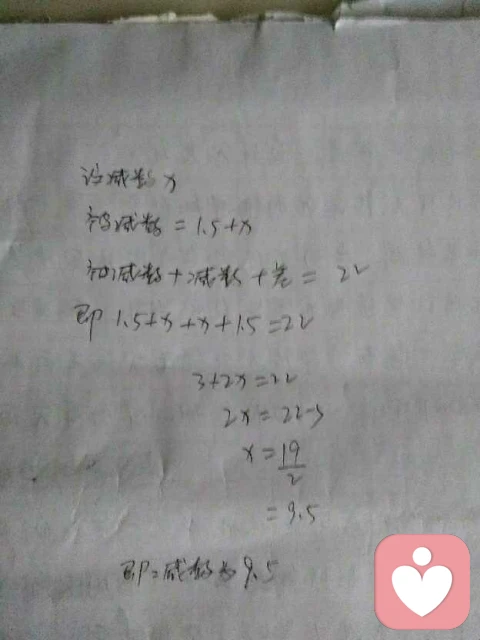 设减数x
被减数=1.5+x
被减数+减数+差=22
即1.5+x+x+1.5=22
3+2x=22
2x=22-3
x=19/2
=9.5
即:减数为9.5